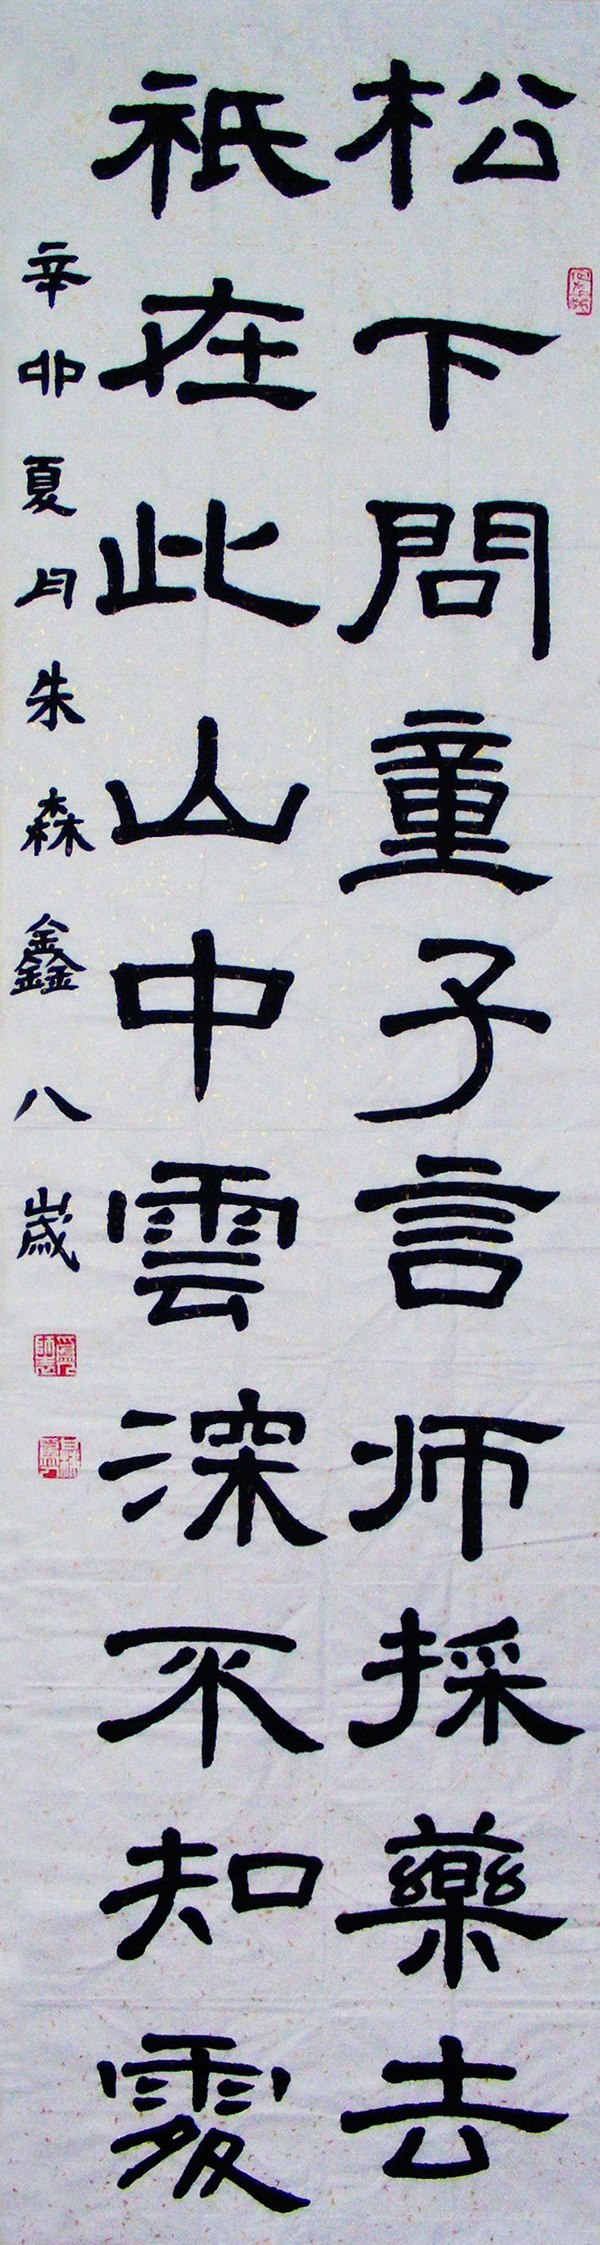 松下問童子言师採藥去
祇在此山中雲深不知處
辛卯夏月朱森鑫八歲